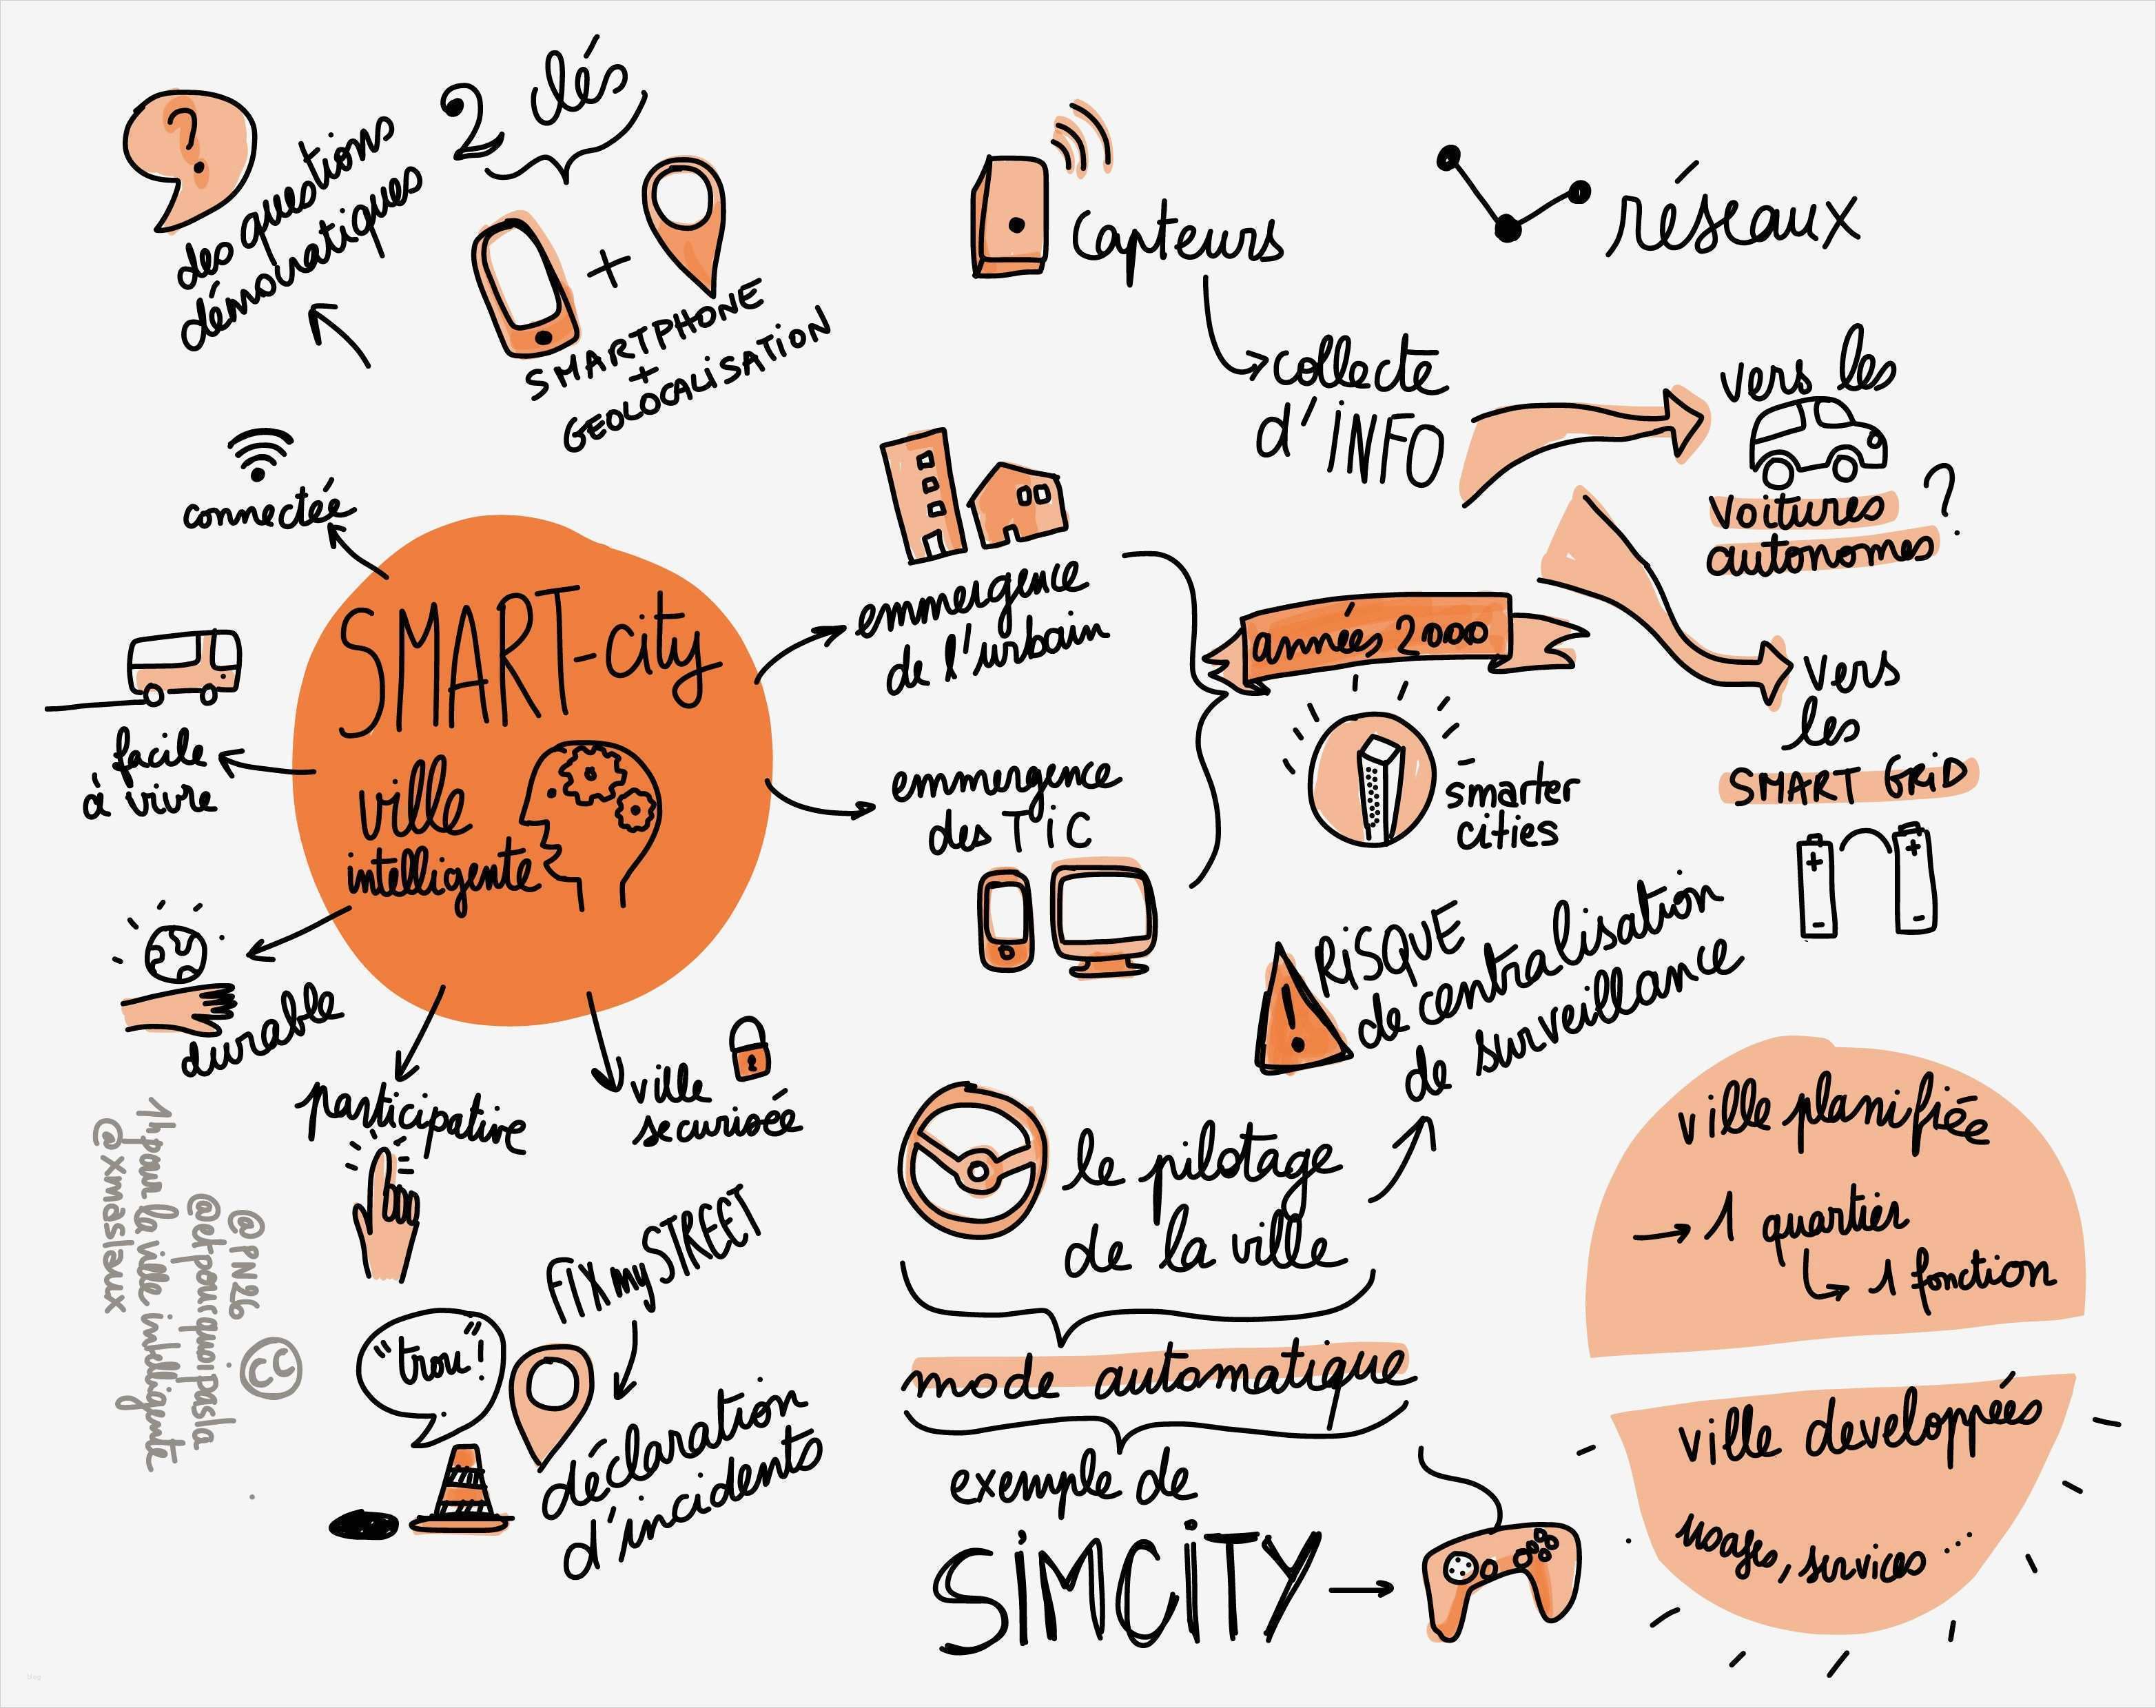 ?
des questions
démocratiques
2 clés
+
SMARTPHONE
+
GEOLOCALISATION
connectée
facile
à vivre
durable
participative
ville
securisée
SMART-city
ville
intelligente
capteurs
réseaux
collecte
d'INFO
vers les
voitures
autonomes
?
vers
les
SMART GRID
+ +
- -
emmergence
de l'urbain
emmergence
des TIC
années 2000
smarter
cities
! RISQUE
de centralisation
de surveillance
le pilotage
de la ville
mode automatique
exemple de
SIMCITY
FIX my STREET
"trou"!
déclaration
d'incidents
ville planifiée
→ 1 quartier
↳ 1 fonction
ville developpées
usages, services ...
@PN26
@etpourquoipasla
1hpour la ville intelligente
@xmaslaux